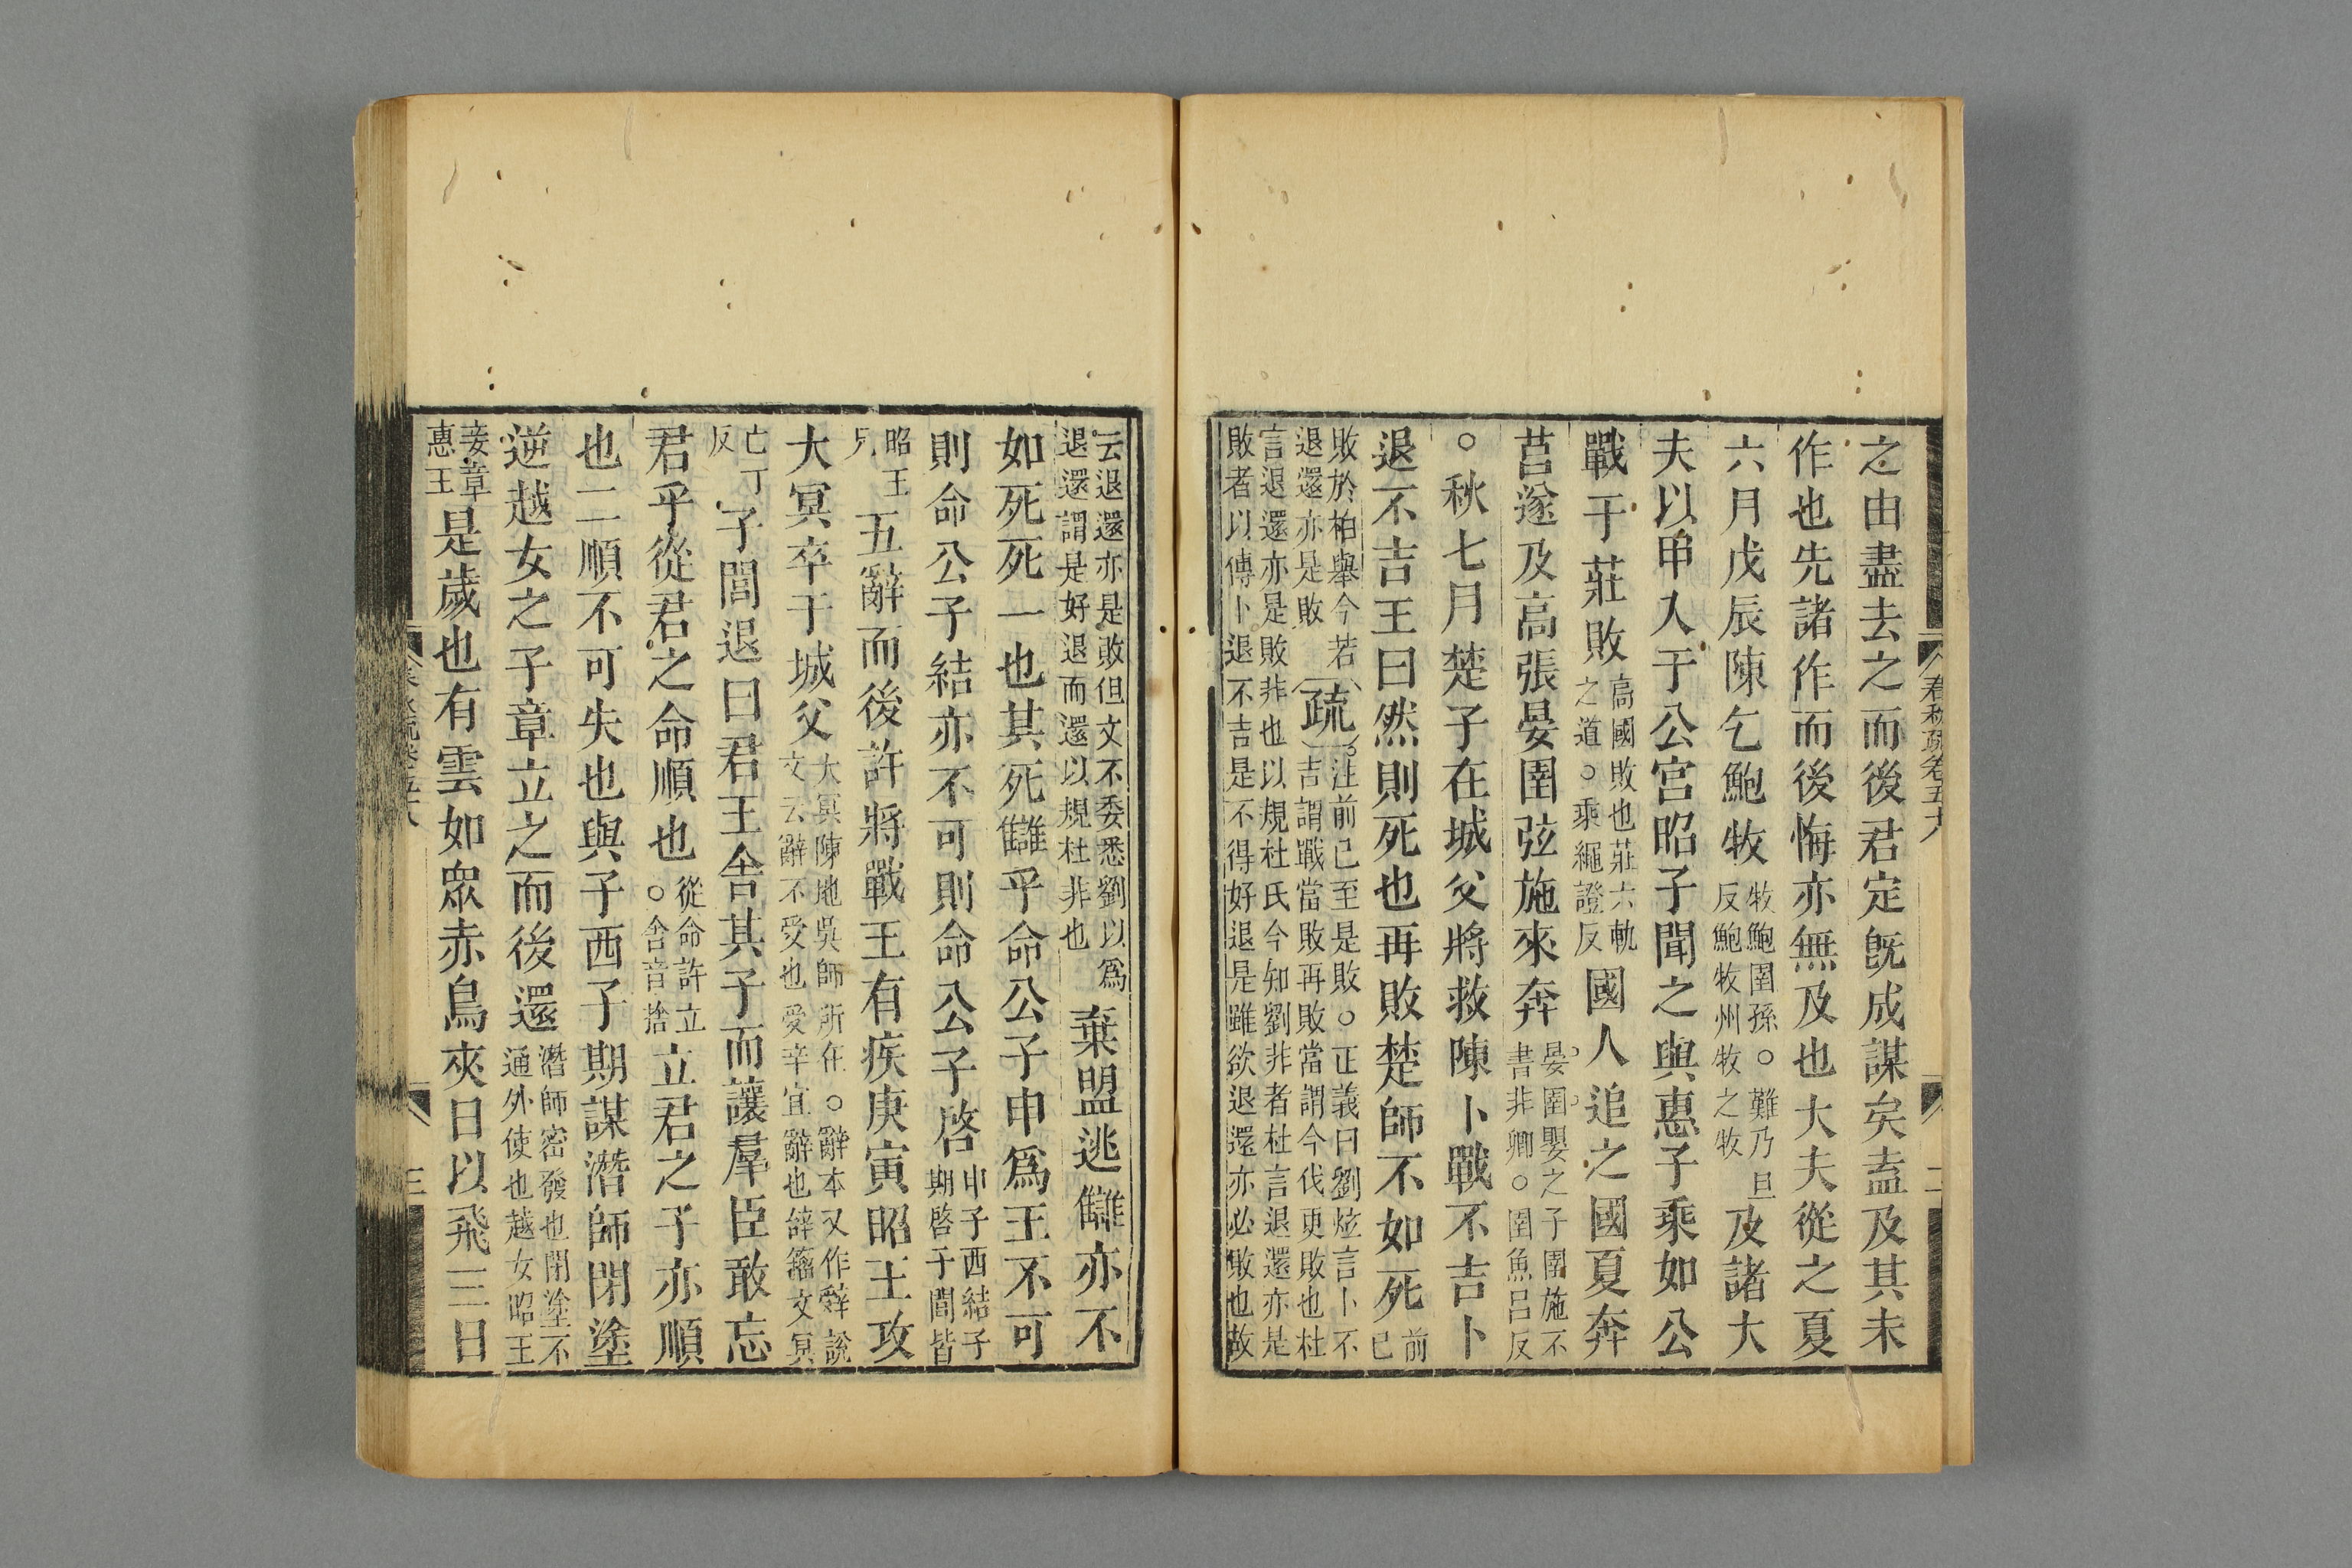 春秋疏卷五十八
二
之由盡去之而後君定旣成謀矣盍及其未
作也先諸作而後悔亦無及也大夫從之夏
六月戊辰陳乞鮑牧牧鮑圉孫○難乃旦反鮑牧州牧之牧及諸大
夫以甲入于公宮昭子聞之與惠子乘如公
戰于莊敗高國敗也莊六軌之道○乘繩證反國人追之國夏奔
莒遂及高張晏圉弦施來奔晏圉嬰之子圉施不書非卿○圉魚呂反
○秋七月楚子在城父將救陳卜戰不吉卜
退不吉王曰然則死也再敗楚師不如死前已
敗於柏舉今若退還亦是敗疏注前已至是敗○正義曰劉炫言卜不吉謂戰當敗再敗當謂今伐更敗也杜
言退還亦是敗非也以規杜氏今知劉非者杜言退還亦是
敗者以傳卜退不吉是不得好退是雖欲退還亦必敗也故
云退還亦是敗但文不委悉劉以爲退還謂是好退而還以規杜非也棄盟逃讎亦不
如死死一也其死讎乎命公子申爲王不可
則命公子結亦不可則命公子啓申子西結子期啓子閭皆
昭王兄五辭而後許將戰王有疾庚寅昭王攻
大冥卒于城父大冥陳地吳師所在○辭本又作辤說文云辭不受也受辛宜辭也辝籀文冥
亡丁反子閭退曰君王舍其子而讓羣臣敢忘
君乎從君之命順也從命許立○舍音捨立君之子亦順
也二順不可失也與子西子期謀潛師閉塗
逆越女之子章立之而後還潛師密發也閉塗不通外使也越女昭王
妾章惠王是歲也有雲如眾赤鳥夾日以飛三日
三